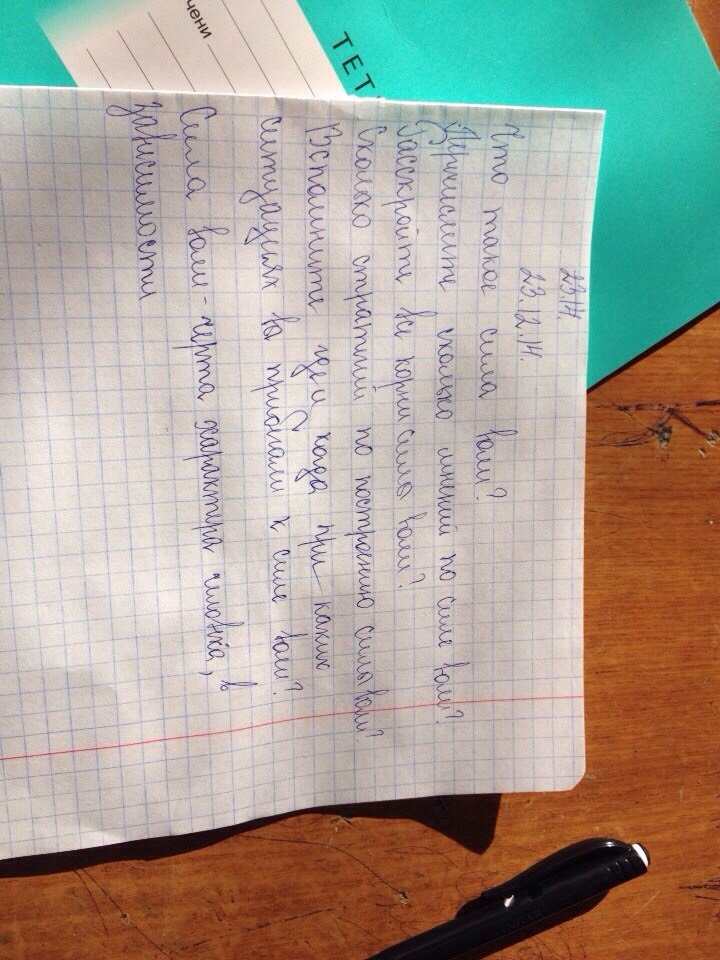 чени
ТЕТ
23.14.
23.12.14.
Что такое сила воли?
Перечислите сколько мнений по силе воли?
Расскройте все корни сила воли?
Сколько стратгий по построению силы воли?
Вспомните где и когда при каких
ситуациях вы прибегали к силе воли?
Сила воли - черта характера человека, в
зависимости